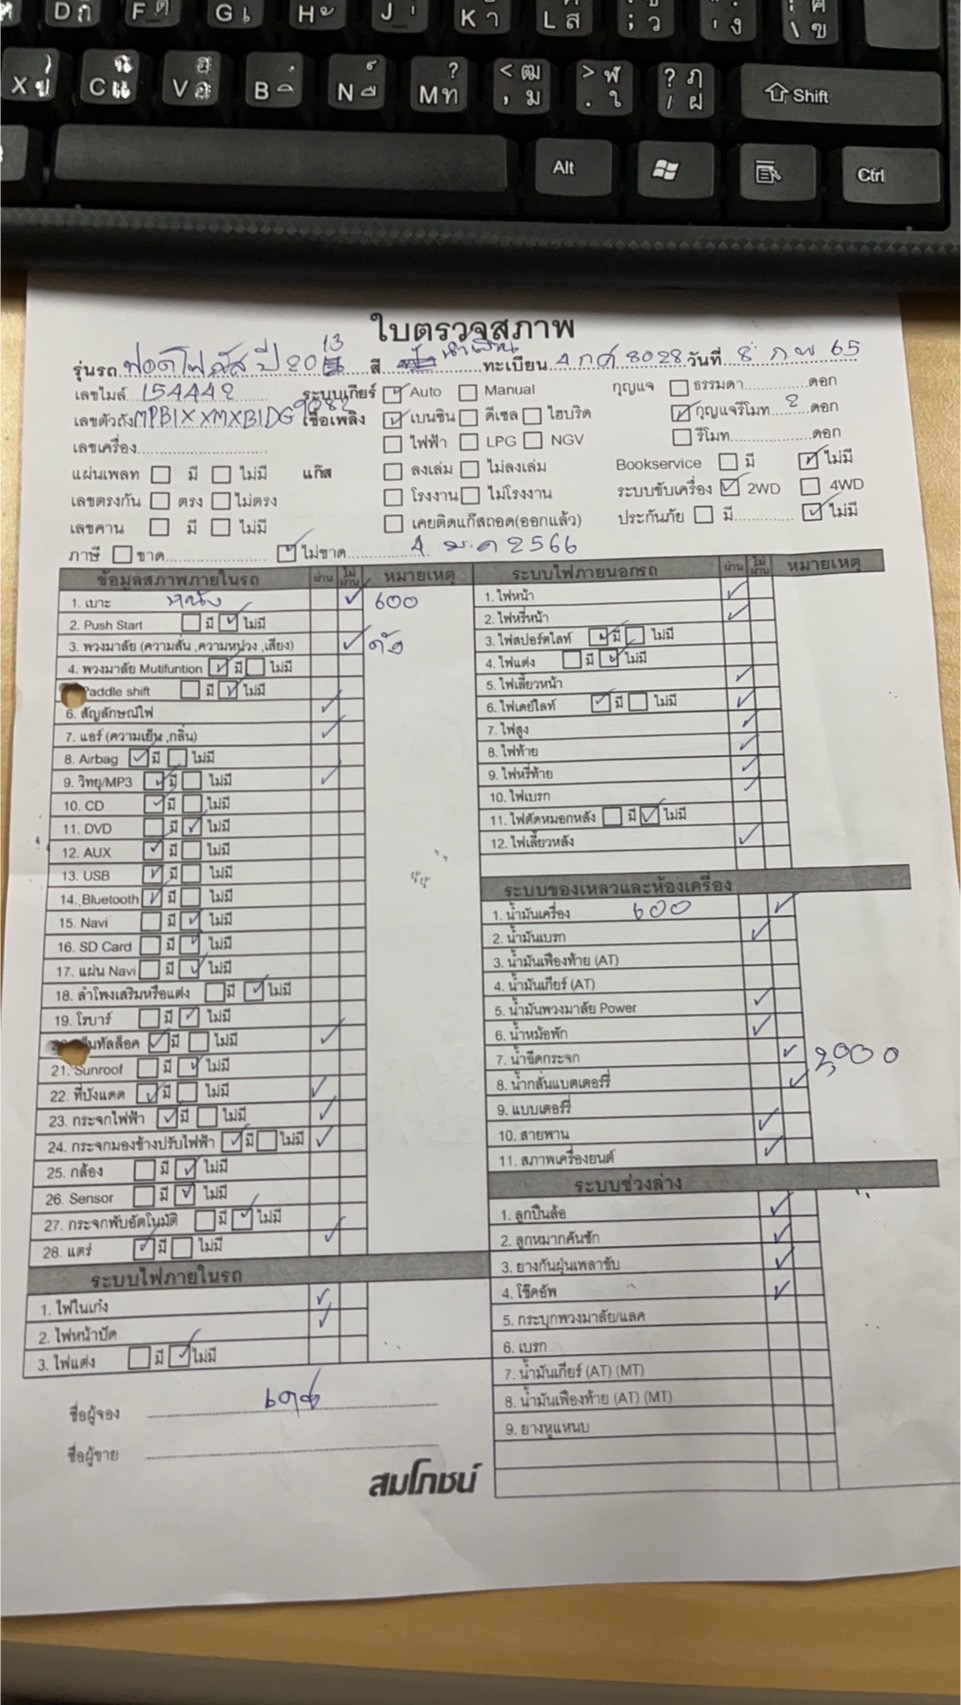 D ก F ด G เ H ้ J ่ K า L ส ; ว ' ง \ ฃ
X ป C แ V อ B ิ N ื ? M ท < ฒ , ม > ฬ . ใ ? ฦ / ฝ Shift
Alt Ctrl
ใบตรวจสภาพ
รุ่นรถ ฟอตโฟกัส ปี 2013 สี น้ำเงิน ทะเบียน 4 กศ 8028 วันที่ 8 กพ 65
เลขไมล์ 154442 ระบบเกียร์ Auto Manual กุญแจ ธรรมดา ดอก
เลขตัวถัง MPB1XXMXB1DG9082 เชื้อเพลิง เบนซิน ดีเซล ไฮบริด กุญแจรีโมท 2 ดอก
เลขเครื่อง ไฟฟ้า LPG NGV รีโมท ดอก
แผ่นเพลท มี ไม่มี แก๊ส ลงเล่ม ไม่ลงเล่ม Bookservice มี ไม่มี
เลขตรงกัน ตรง ไม่ตรง โรงงาน ไม่โรงงาน ระบบขับเครื่อง 2WD 4WD
เลขคาน มี ไม่มี เคยติดแก๊สถอด(ออกแล้ว) ประกันภัย มี ไม่มี
ภาษี ขาด ไม่ขาด 4 ม.ค 2566
ข้อมูลสภาพภายในรถ ผ่าน ไม่ผ่าน หมายเหตุ
1. เบาะ หนัง 600
2. Push Start มี ไม่มี
3. พวงมาลัย (ความสั่น ,ความหน่วง ,เสียง) ดัง
4. พวงมาลัย Mutifuntion มี ไม่มี
Paddle shift มี ไม่มี
6. สัญลักษณ์ไฟ
7. แอร์ (ความเย็น ,กลิ่น)
8. Airbag มี ไม่มี
9. วิทยุ/MP3 มี ไม่มี
10. CD มี ไม่มี
11. DVD มี ไม่มี
12. AUX มี ไม่มี
13. USB มี ไม่มี
14. Bluetooth มี ไม่มี
15. Navi มี ไม่มี
16. SD Card มี ไม่มี
17. แผ่น Navi มี ไม่มี
18. ลำโพงเสริมหรือแต่ง มี ไม่มี
19. โรบาร์ มี ไม่มี
ซ็นทัลล็อค มี ไม่มี
21. Sunroof มี ไม่มี
22. ที่บังแดด มี ไม่มี
23. กระจกไฟฟ้า มี ไม่มี
24. กระจกมองข้างปรับไฟฟ้า มี ไม่มี
25. กล้อง มี ไม่มี
26. Sensor มี ไม่มี
27. กระจกพับอัตโนมัติ มี ไม่มี
28. แตร มี ไม่มี
ระบบไฟภายในรถ
1. ไฟในเก๋ง
2. ไฟหน้าปัด
3. ไฟแต่ง มี ไม่มี
ชื่อผู้จอง
ชื่อผู้ขาย
สมโภชน์
ระบบไฟภายนอกรถ ผ่าน ไม่ผ่าน หมายเหตุ
1. ไฟหน้า
2. ไฟหรี่หน้า
3. ไฟสปอร์ตไลท์ มี ไม่มี
4. ไฟแต่ง มี ไม่มี
5. ไฟเลี้ยวหน้า
6. ไฟเดย์ไลท์ มี ไม่มี
7. ไฟสูง
8. ไฟท้าย
9. ไฟหรี่ท้าย
10. ไฟเบรก
11. ไฟตัดหมอกหลัง มี ไม่มี
12. ไฟเลี้ยวหลัง
ระบบของเหลวและห้องเครื่อง
1. น้ำมันเครื่อง 600
2. น้ำมันเบรก
3. น้ำมันเฟืองท้าย (AT)
4. น้ำมันเกียร์ (AT)
5. น้ำมันพวงมาลัย Power
6. น้ำหม้อพัก
7. น้ำฉีดกระจก 2,000
8. น้ำกลั่นแบตเตอร์รี่
9. แบบเตอร์รี่
10. สายพาน
11. สภาพเครื่องยนต์
ระบบช่วงล่าง
1. ลูกปืนล้อ
2. ลูกหมากคันชัก
3. ยางกันฝุ่นเพลาขับ
4. โช๊คอัพ
5. กระบุกพวงมาลัย/แลค
6. เบรก
7. น้ำมันเกียร์ (AT) (MT)
8. น้ำมันเฟืองท้าย (AT) (MT)
9. ยางหูแหนบ